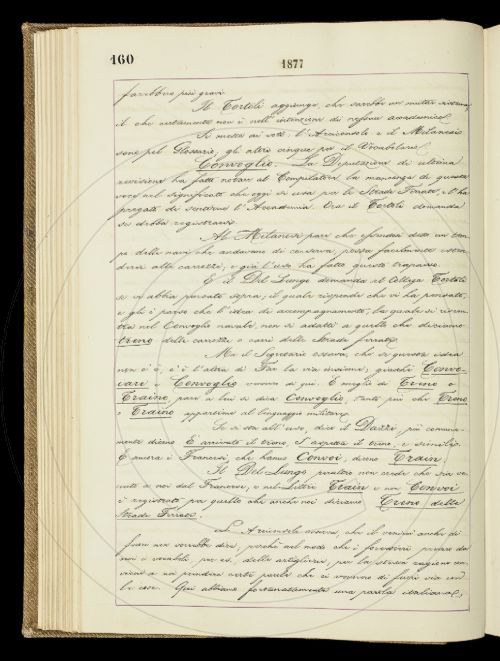 160
1877
farebbero più gravi.
Il Tortoli aggiunge che sarebbe un mutar sistema,
il che certamente non è nell'intenzione di nessun accademico.
Si mette ai voti: l'Arciconsolo e il Milanesi
sono pel Glossario, gli altri cinque per il Vocabolario.
Convoglio. La Deputazione di ultima
revisione ha fatto notare al Compilatore la mancanza di questa
voce nel significato che oggi si usa per le Strade Ferrate, e l'ha
pregato di sentirne l'Accademia. Ora il Tortoli domanda
se debba registrarsi.
Al Milanesi pare che essendosi detto un tem-
po delle navi che andavano di conserva, possa facilmente esten-
dersi alle carrozze, e già l'uso ha fatto questo trapasso.
E il Del Lungo domanda al Collega Tortoli
se vi abbia pensato sopra; il quale risponde che vi ha pensato,
e gli è parso che l'idea di accompagnamento, la quale si riscon-
tra nel Convoglio navale, non si adatti a quello che diciamo
treno delle carrozze o carri delle strade ferrate.
Ma il Segretario osserva, che se questa idea
non c'è, c'è l'altra di Far la via insieme, giacchè Convo-
care e Convoglio vengono di qui. E meglio di Treno o
Traino, pare a lui si dica Convoglio, tanto più che Treno
e Traino appartiene al linguaggio militare.
Se si sta all'uso, dice il Dazzi, più comune-
mente dicono È arrivato il treno, S'aspetta il treno, e simili.
E ancora i Francesi, che hanno Convoi, dicono Train.
Il Del Lungo peraltro non crede che sia ve-
nuto a noi dal Francese, e nel Littré Train e non Convoi
è registrato per quello che anche noi diciamo Treno delle
Strade Ferrate.
L'Arciconsolo osserva, che il venirci anche di
fuori non vorrebbe dire, perchè nel modo che i forestieri presero da
noi i vocaboli per es. delle artiglierie, per la stessa ragione con-
viene a noi prendere certe parole che ci vengono di fuori via con
le cose. Qui abbiamo fortunatamente una parola italiana,